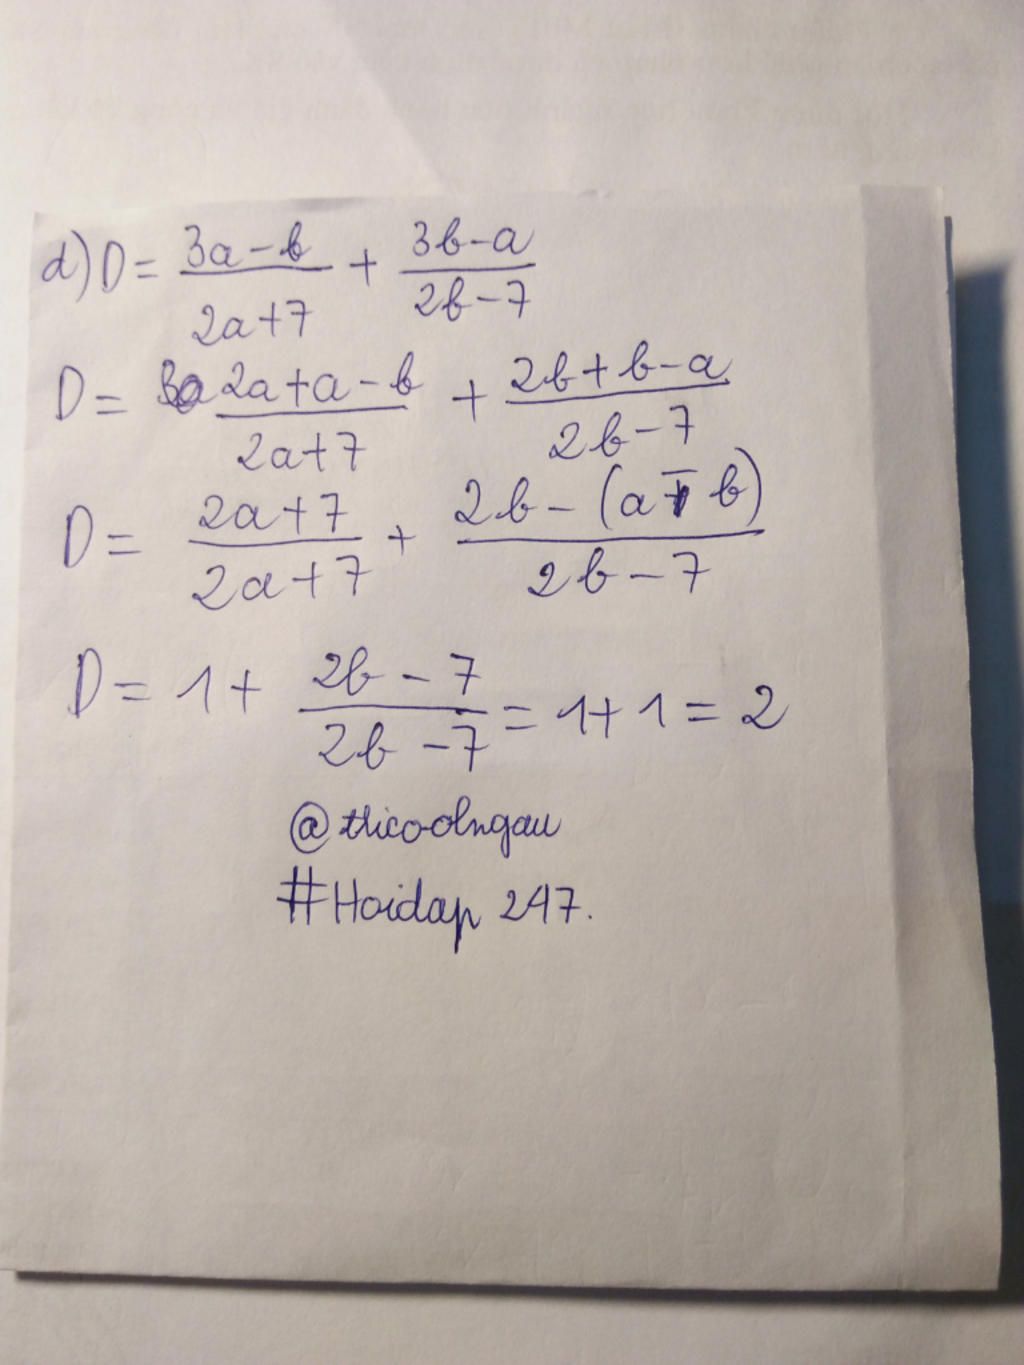 d) D = \frac{3a-b}{2a+7} + \frac{3b-a}{2b-7}
D = \frac{2a+a-b}{2a+7} + \frac{2b+b-a}{2b-7}
D = \frac{2a+7}{2a+7} + \frac{2b-(a-b)}{2b-7}
D = 1 + \frac{2b-7}{2b-7} = 1+1 = 2
@thicoolngau
#Hoidap 247.